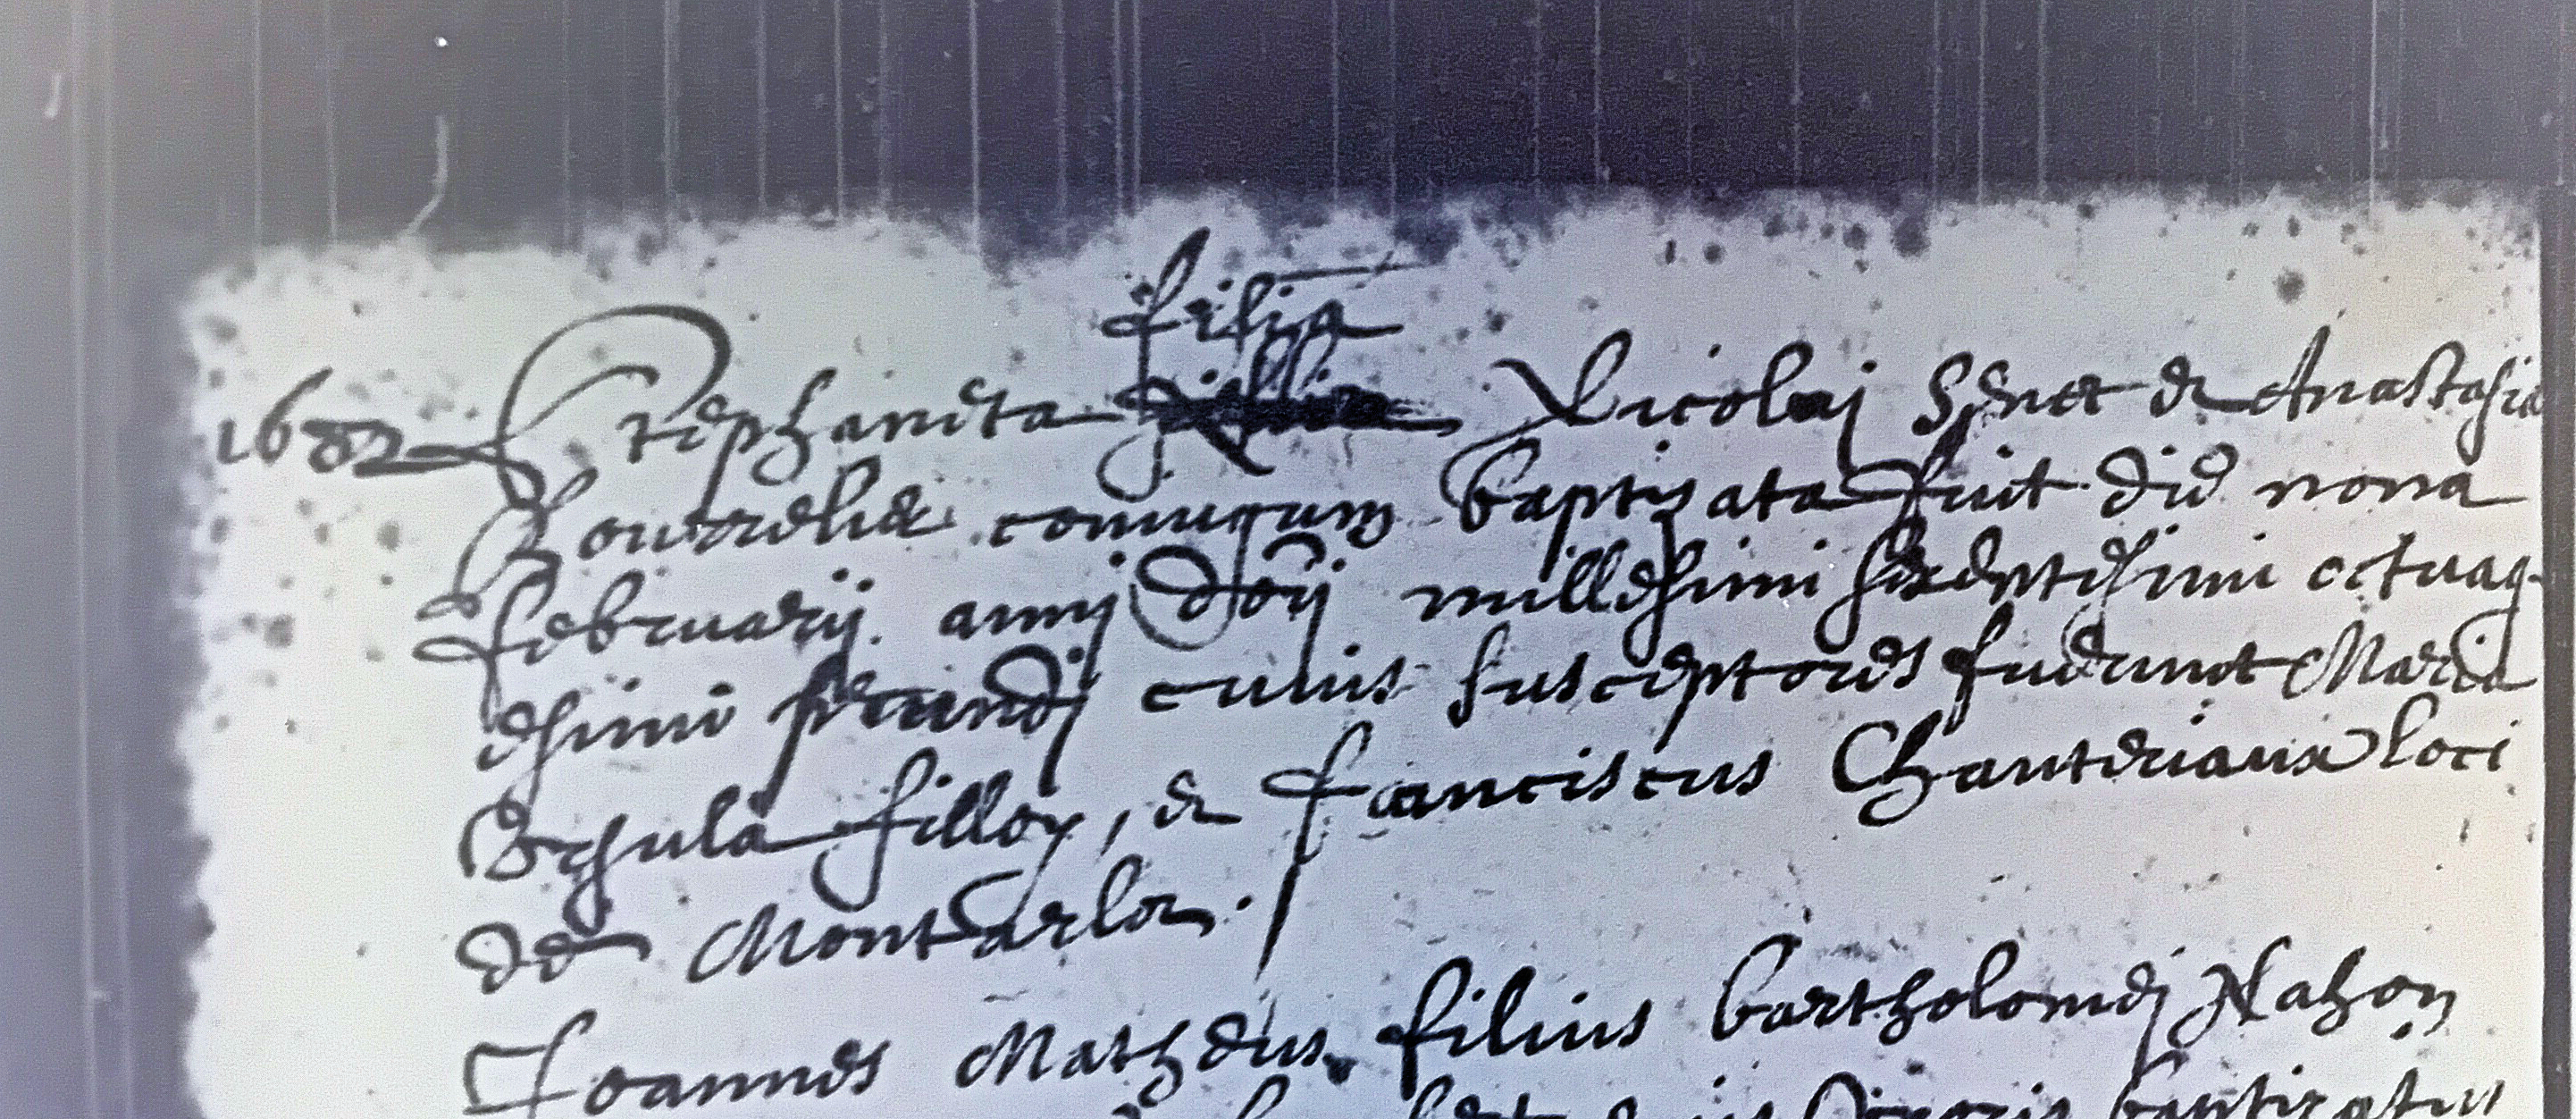 filia
1682 Stephaneta Nicolaj Spnet & Anastasia
Bourrelier coniugum baptizata fuit die nona
februarij annj dnj millesimi sexentesimi octuag-
esimi secundj cuius susceptores fuerunt Maria
Vrsula filloz, & franciscus Chanteriaux loci
de Montarlot.
Joannes Mathæus filius bartholomej Nahon
baptizatus